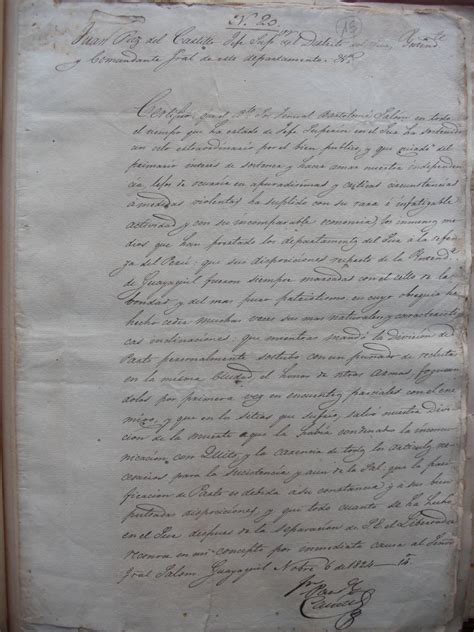 N.º 20.
Juan Paz del Castillo Gefe Sup.or del Distrito del Sur, Intend.te
y Comandante Gral de este departamento &.ª
Certifico: que el S.or General Bartolomé Salom en todo
el tiempo que ha estado de Gefe Superior en el Sur ha
un celo extraordinario por el bien publico, y que guiado del
primario interes de sostener y hacer amar nuestra independen
cia, lejos de ocurrir en apuradisimas y criticas circunstancias
a medidas violentas ha suplido con su rara é infatigable
actividad y con su incomparable economia, los inmensos me
dios que han prestado los departamentos del Sur a la defen
za del Perú: que sus disposiciones respecto de la Intend.ª
de Guayaquil fueron siempre marcadas con el sello de la
bondad, y del mas puro patriotismo en cuyo obsequio ha
hecho ceder muchas veces sus mas naturales y caracteristi
cas inclinaciones: que mientras mandó la division de
Pasto personalmente sostubo con un puñado de reclutas
en la misma Ciudad el honor de ntras armas, fogueán
dolos por primera vez en encuentros parciales con el ene
migo, y que en los sitios que sufrio, salvó nuestra divi
cion de la muerte a que la habia condenado la incomu
nicacion con Quito, y la carencia de todos los articulos ne
cesarios para la sucistencia y aun de la Sal, que la paci
ficacion de Pasto es debida a su constancia y a sus bien
disposiciones, y que todo cuanto se ha hecho
en el Sur despues de la separacion de S.E. el Libertador
en mi concepto por inmediata causa al Señor
Gral Salom. Guayaquil Nobre 6 de 1824 — 14.
Juan P.
Castillo